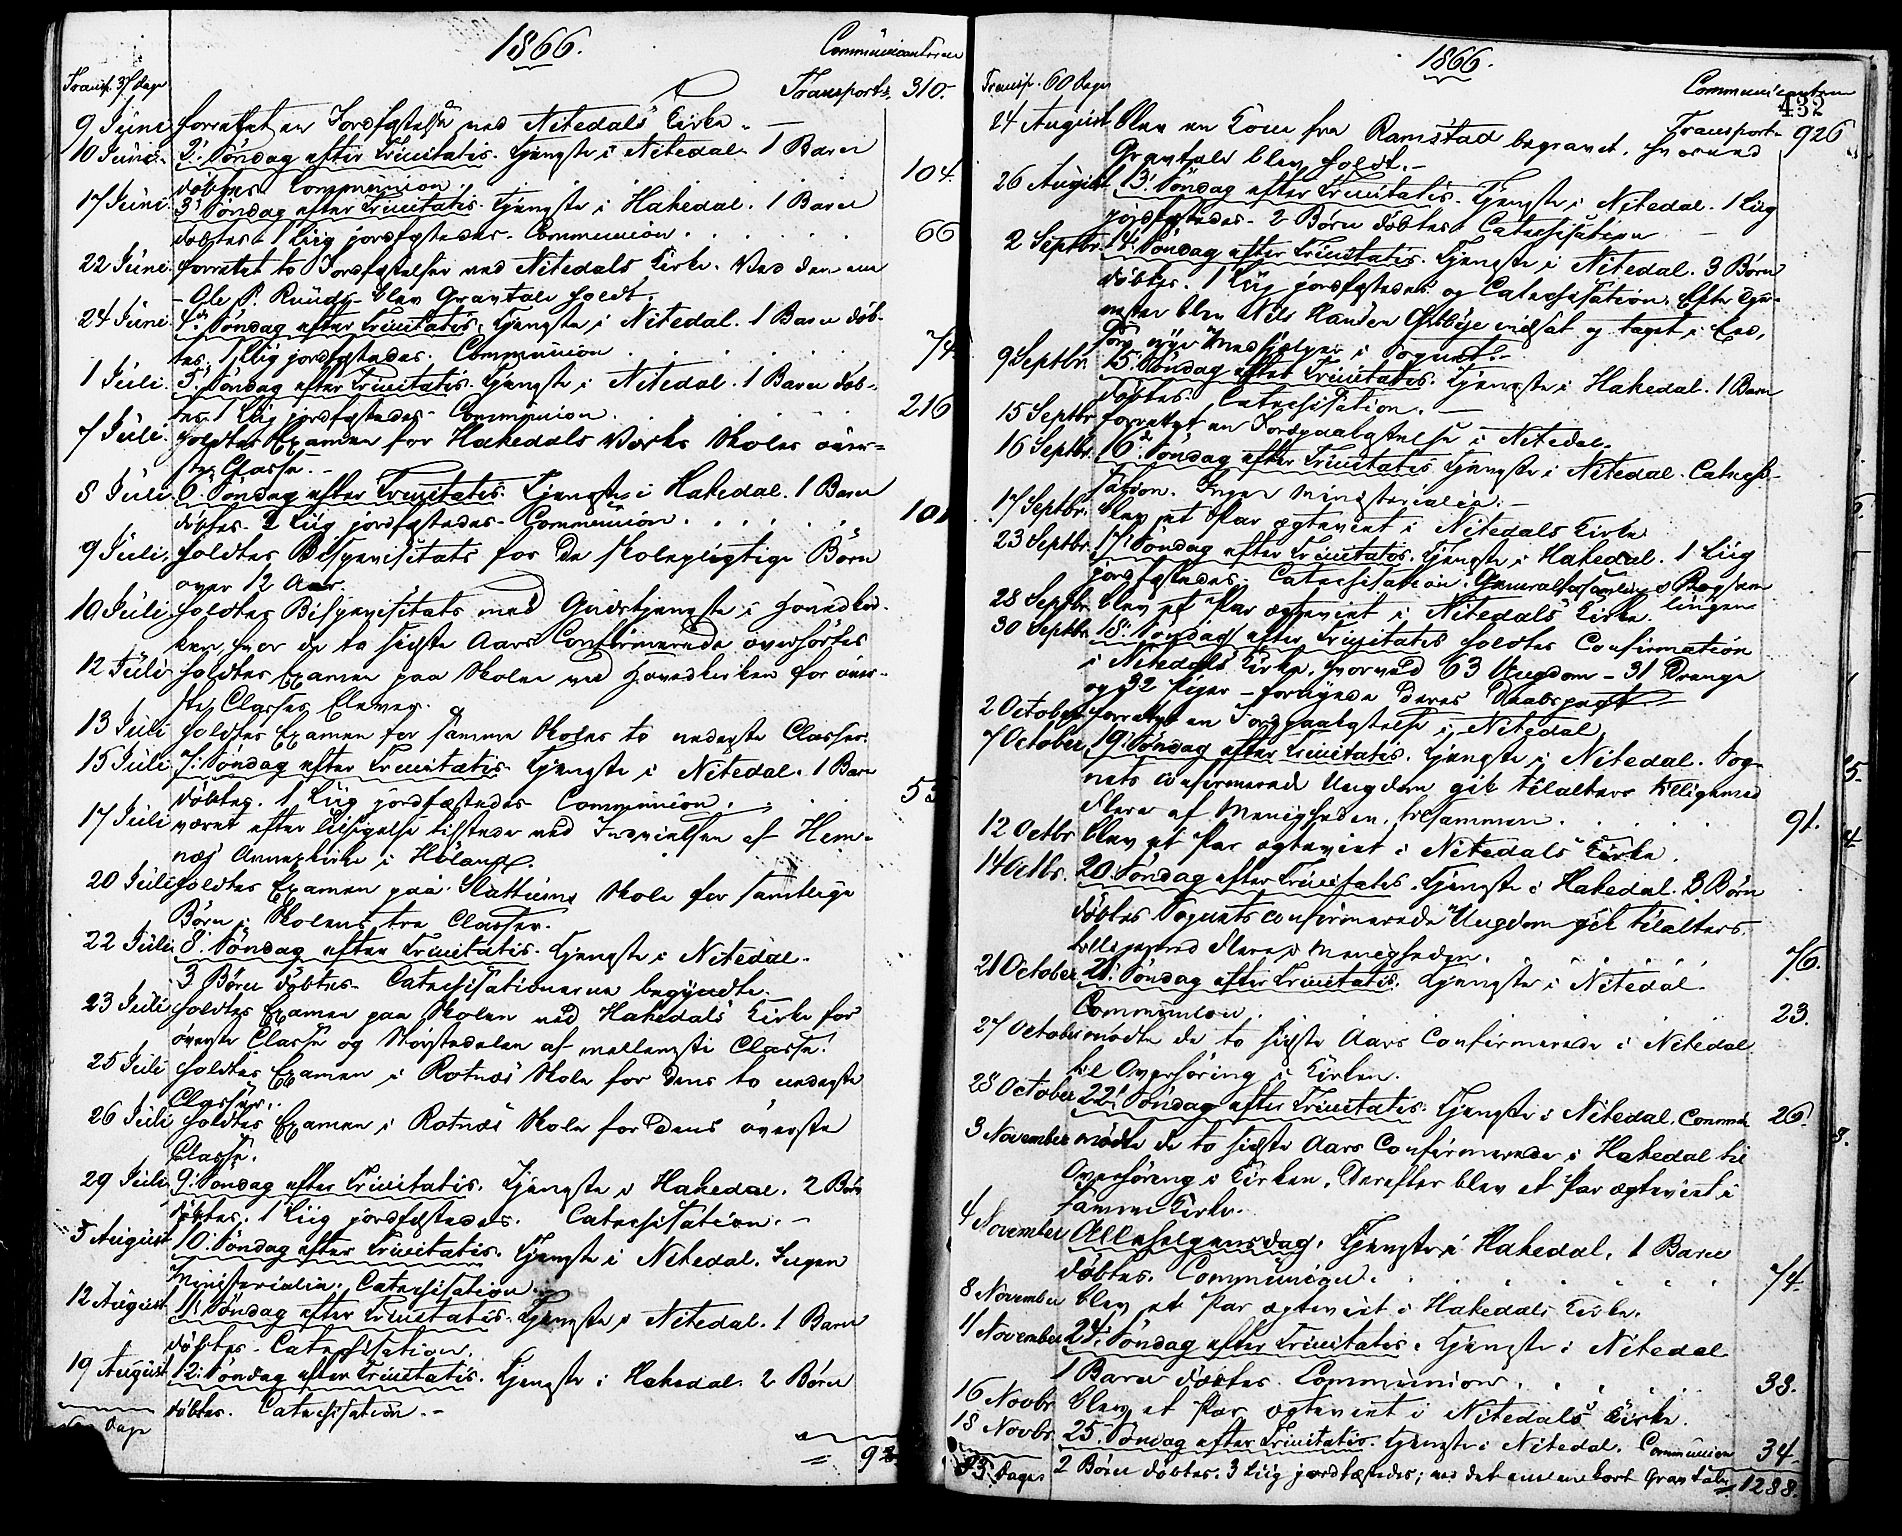 1866.
Communicanterne
Transp. 37 Dage
Transport. 310.
9 Juni forrettet en Jordfæstelse ved Nitedals Kirke.
10 Juni 2. Søndag efter Trinitatis. Tjeneste i Nitedal. 1 Barn
døbtes. Communion. 104.
17 Juni 3. Søndag efter Trinitatis. Tjeneste i Hakedal. 1 Barn
døbtes. 1 Liig jordfæstedes. Communion. 66
22 Juni forrettet to Jordfæstelser ved Nitedals Kirke. Ved den ene
- Ole P. Ruuds - blev Gravtale holdt.
24 Juni 4. Søndag efter Trinitatis. Tjeneste i Nitedal. 1 Barn døb-
tes. 1 Liig jordfæstedes. Communion 74.
1 Juli. 5. Søndag efter Trinitatis. Tjeneste i Nitedal. 1 Barn døb-
tes. 1 Liig jordfæstedes. Communion. 216
7 Juli. holdtes Examen for Hakedals Værks Skoles øver-
ste Classe.
8 Juli 6. Søndag efter Trinitatis. Tjeneste i Hakedal. 1 Barn
døbtes. 2 Liig jordfæstedes. Communion. 101
9 Juli. holdtes Bispevisitats for de skolepligtige Børn
over 12 Aar.
10 Juli holdtes Bispevisitats med Gudstjeneste i Hovedkir-
ken, hvor de to sidste Aars Confirmerede overhørtes
12 Juli holdtes Examen paa Skolen ved Hovedkirken for øver-
ste Classes Elever.
13 Juli holdtes Examen for samme Skoles to nederste Classer.
15 Juli 7. Søndag efter Trinitatis. Tjeneste i Nitedal. 1 Barn
døbtes. 1 Liig jordfæstedes. Communion. 53
17 Juli været efter Tilsigelse tilstede ved Indvielsen af Hem-
næs Annexkirke i Høland.
20 Juli holdtes Examen paa Slattums Skole for samtlige
Børn i Skolens tre Classer.
22 Juli 8. Søndag efter Trinitatis. Tjeneste i Nitedal.
3 Børn døbtes. Catechisationerne begyndte.
23 Juli holdtes Examen paa Skolen ved Hakedals Kirke for
øverste Classe og Størstedelen af mellemste Classe.
25 Juli holdtes Examen i Rotnæs Skole for dens to nederste
Classer.
26 Juli holdtes Examen i Rotnæs Skole for dens øverste
Classe.
29 Juli 9. Søndag efter Trinitatis. Tjeneste i Hakedal. 2 Børn
døbtes. 1 Liig jordfæstedes. Catechisation.
5 August 10. Søndag efter Trinitatis. Tjeneste i Nitedal. Ingen
Ministerialia. Catechisation.
12 August 11. Søndag efter Trinitatis. Tjeneste i Nitedal. 1 Barn
døbtes. Catechisation.
19 August 12. Søndag efter Trinitatis. Tjeneste i Hakedal. 2 Børn
døbtes. Catechisation.
Dage
1866.
Transp. 60 Dage
Communicanterne
432
Transport. 926
24 August blev en Kone fra Ramstad begravet, hvorved
Gravtale blev holdt.
26 August 13. Søndag efter Trinitatis. Tjeneste i Nitedal. 1 Liig
jordfæstedes. 2 Børn døbtes. Catechisation
2 Septbr. 14. Søndag efter Trinitatis. Tjeneste i Nitedal. 3 Børn
døbtes. 1 Liig jordfæstedes og Catechisation. Efter Tje-
nesten blev Nils Hansen indsat og taget i Eed,
som nye Medhjelper i Sognet.
9 Septbr. 15. Søndag efter Trinitatis. Tjeneste i Hakedal. 1 Barn
døbtes. Catechisation.
15 Septbr. forrettet en Jordpaakastelse i Nitedal.
16 Septbr. 16. Søndag efter Trinitatis Tjeneste i Nitedal. Catechi-
sation. Ingen Ministerialia.
17 Septbr. blev et Par ægteviet i Nitedals Kirke
23 Septbr. 17. Søndag efter Trinitatis. Tjeneste i Hakedal. 1 Liig
jordfæstedes. Catechisation. Generalforsamling i Bogsam-
lingen
28 Septbr. blev et Par ægteviet i Nitedals Kirke.
30 Septbr. 18. Søndag efter Trinitatis holdtes Confirmation
i Nitedals Kirke, hvorved 63 Ungdom - 31 Drenge
og 32 Piger - fornyede deres Daabspagt
2 October forrettet en Jordpaakastelse i Nitedal
7 October 19. Søndag efter Trinitatis. Tjeneste i Nitedal. Sog-
nets confirmerede Ungdom gik tilalters tilligemed
Flere af Menigheden, tilsammen. 91.
12 Octbr. blev et Par ægteviet i Nitedals Kirke.
14 Octbr. 20. Søndag efter Trinitatis. Tjeneste i Hakedal. 3 Børn
døbtes. Sognets confirmerede Ungdom gik tilalters
tilligemed Flere i Menigheden. 76.
21 October 21. Søndag efter Trinitatis. Tjeneste i Nitedal.
Communion. 23.
27 October mødte de to sidste Aars Confirmerede i Nitedal
til Overhøring i Kirken.
28 October 22. Søndag efter Trinitatis. Tjeneste i Nitedal. Commu. 26.
3 November mødte de to sidste Aars Confirmerede i Hakedal til
Overhøring i Kirken. Derefter blev et Par ægteviet i
samme Kirke.
4 November Allehelgensdag. Tjeneste i Hakedal. 1 Barn
døbtes. Communion. 74.
8 November blev et Par ægteviet i Hakedals Kirke.
11 November 24. Søndag efter Trinitatis. Tjeneste i Nitedal
1 Barn døbtes. Communion. 38.
16 Novbr. blev et Par ægteviet i Nitedals Kirke.
18 Novbr. 25. Søndag efter Trinitatis. Tjeneste i Nitedal. Communion 34.
83 Dage 2 Børn døbtes. 3 Liig jordfæstedes; ved det ene en kort Gravtale. 1288.